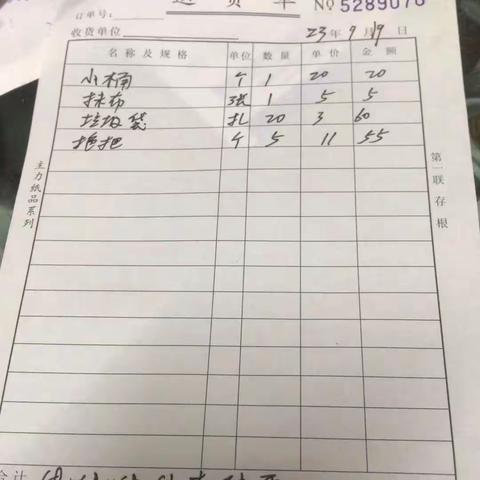 送货单
订单号: №5289076
收货单位 23年9月19日
名称及规格 单位 数量 单价 金额
小桶 个 1 20 20
抹布 张 1 5 5
垃圾袋 扎 20 3 60
拖把 个 5 11 55
主力纸品系列
第一联存根
合计